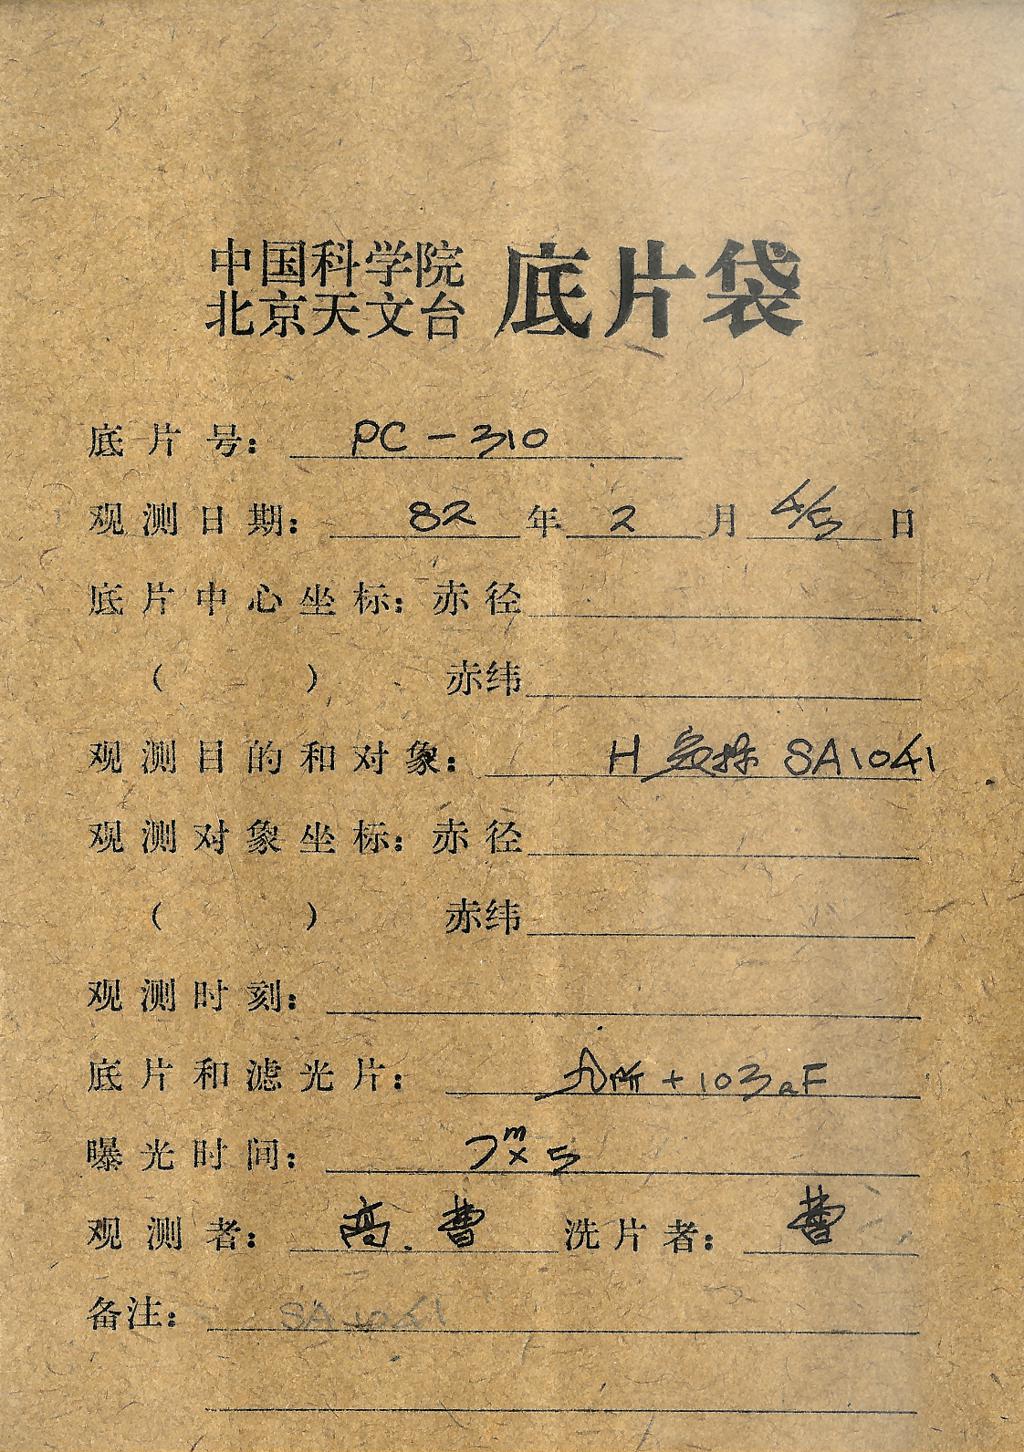 中国科学院
北京天文台 底片袋
底片号： PC-310
观测日期： 82 年 2 月 4/5 日
底片中心坐标：赤径
（ ） 赤纬
观测目的和对象： H SA1041
观测对象坐标：赤径
（ ） 赤纬
观测时刻：
底片和滤光片： 所+103aF
曝光时间： 7m×5
观测者： 高.曹 洗片者： 曹
备注： SA1041